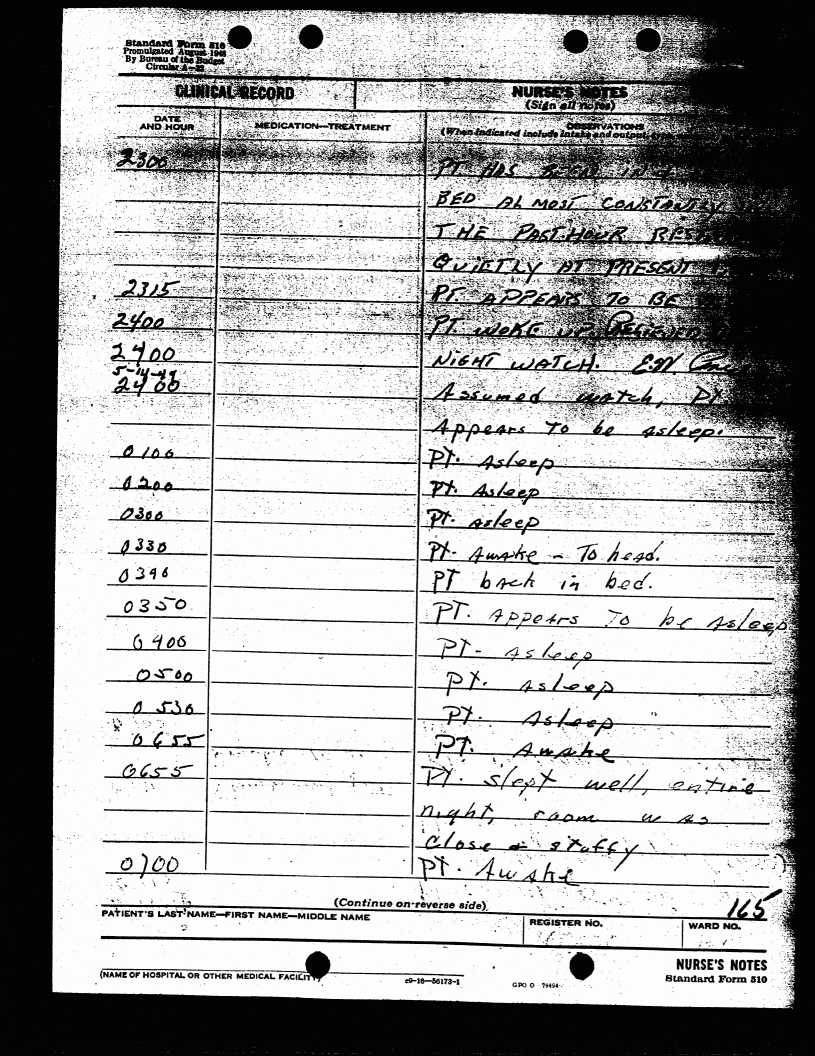 Standard Form 510
Promulgated August 1948
By Bureau of the Budget
Circular A—32
CLINICAL RECORD
NURSE'S NOTES
(Sign all notes)
DATE
AND HOUR
MEDICATION—TREATMENT
OBSERVATIONS
(When indicated include intake and output,
2300 PT HAS BEEN IN
BED ALMOST CONSTANTLY
THE PAST HOUR
QUIETLY AT PRESENT
2315 PT. APPEARS TO BE
2400 PT WOKE UP. RELIEVED
2400 NIGHT WATCH.
5-14-49
2400 Assumed watch, PT.
Appears To be asleep.
0100 PT. Asleep
0200 PT. Asleep
0300 PT. asleep
0330 PT- Awake - To head.
0340 PT back in bed.
0350 PT. appears To be asleep
0400 PT- asleep
0500 PT. asleep
0530 PT. Asleep
0655 PT. Awake
0655 PT. slept well, entire
night, room was
close & stuffy
0700 PT. Awake
165
(Continue on reverse side)
PATIENT'S LAST NAME—FIRST NAME—MIDDLE NAME
REGISTER NO.
WARD NO.
(NAME OF HOSPITAL OR OTHER MEDICAL FACILITY)
c9—16—56173-1
GPO O 79494
NURSE'S NOTES
Standard Form 510